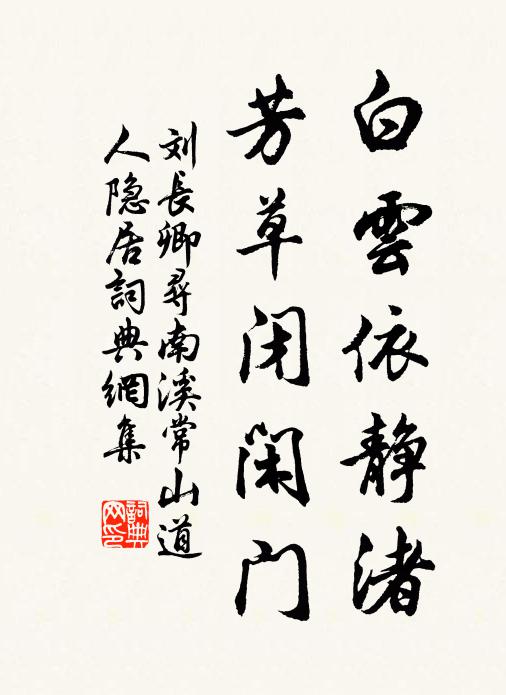 白雲依静渚
芳草闭閑门
刘長卿尋南溪常山道
人隐居詞典網集
詞典
网印